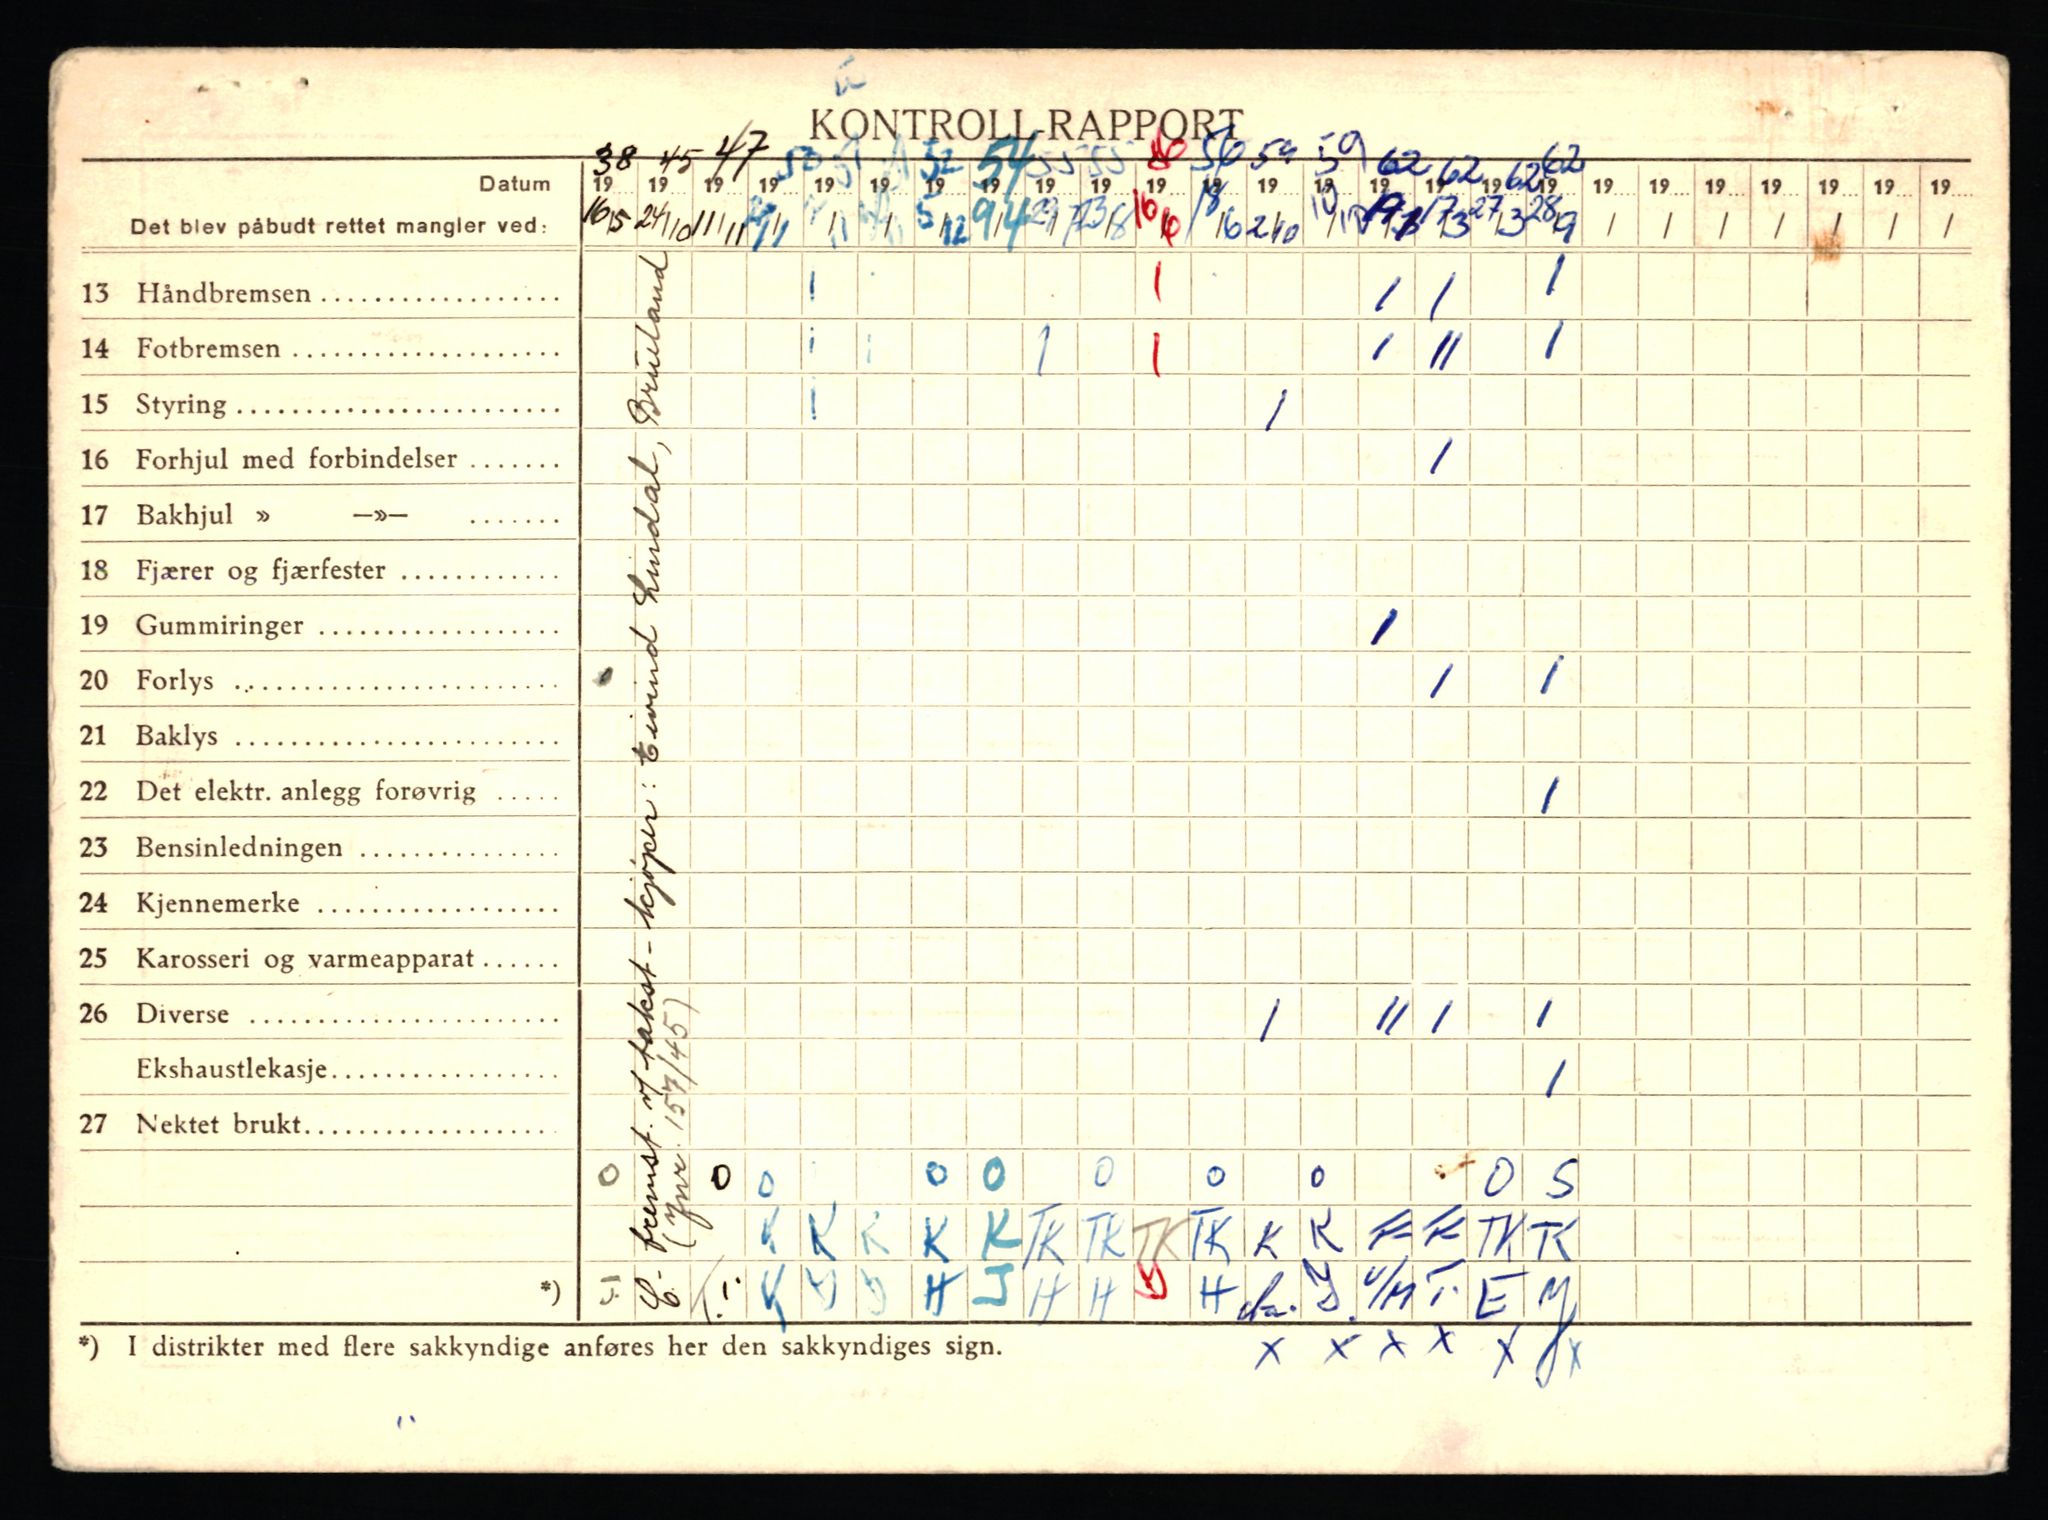 KONTROLL-RAPPORT
38 45 47 52 54 55 55 56 56 59 59 62 62 62 62
Datum 19 19 19 19 19 19 19 19 19 19 19 19 19 19 19 19 19 19 19 19 19 19 19 19 19
Det blev påbudt rettet mangler ved: 16/5 24/10 11/11 5/12 9/4 23/8 16/6 18/6 2/10 17/3 27/3 28/9 / / / / / / /
13 Håndbremsen 1 1 1 1 1
14 Fotbremsen 1 1 1 1 1 11 1
15 Styring 1 1
16 Forhjul med forbindelser 1
17 Bakhjul » —»—
18 Fjærer og fjærfester
19 Gummiringer 1
20 Forlys 1 1
21 Baklys
22 Det elektr. anlegg forøvrig 1
23 Bensinledningen
24 Kjennemerke
25 Karosseri og varmeapparat
26 Diverse 1 11 1 1
Ekshaustlekasje 1
27 Nektet brukt
fremst. v/ takst - kjøper: Eivind Lindal, Brueland
(Jnr. 157/45)
0 0 0 0 0 0 0 0 0 S
K K K K K TK TK TK TK K K TK TK
*) H J H H H E
*) I distrikter med flere sakkyndige anføres her den sakkyndiges sign.
x x x x x x